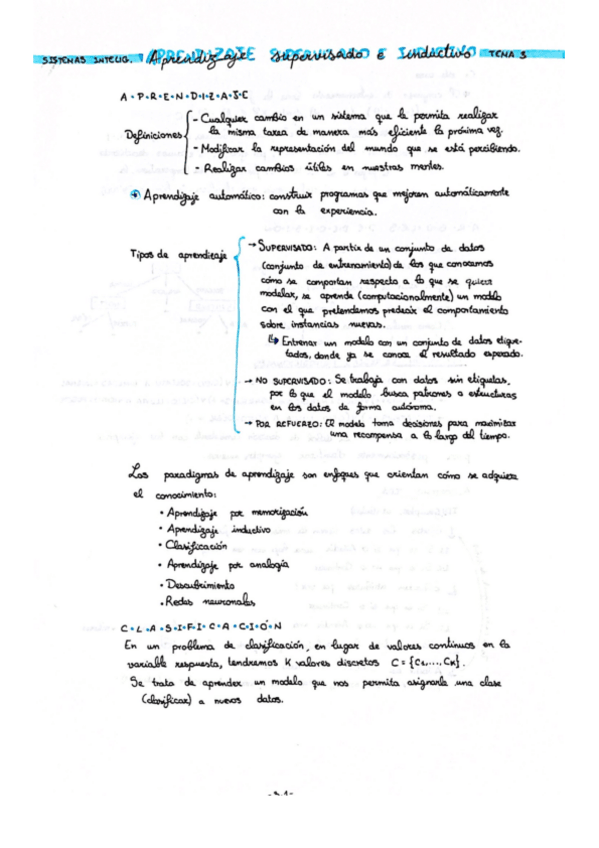 SISTEMAS INTELIG. Aprendizaje supervisado e inductivo TEMA 5
A·P·R·E·N·D·I·Z·A·J·E
Definiciones
- Cualquier cambio en un sistema que le permita realizar
la misma tarea de manera más eficiente la próxima vez.
- Modificar la representación del mundo que se está percibiendo.
- Realizar cambios útiles en nuestras mentes.
Aprendizaje automático: construir programas que mejoren automáticamente
con la experiencia.
Tipos de aprendizaje
→ SUPERVISADO: A partir de un conjunto de datos
(conjunto de entrenamiento) de los que conocemos
cómo se comportan respecto a lo que se quiere
modelar, se aprende (computacionalmente) un modelo
con el que pretendemos predecir el comportamiento
sobre instancias nuevas.
Entrenar un modelo con un conjunto de datos etique-
tados, donde ya se conoce el resultado esperado.
→ NO SUPERVISADO: Se trabaja con datos sin etiquetas,
por lo que el modelo busca patrones o estructuras
en los datos de forma autónoma.
→ POR REFUERZO: El modelo toma decisiones para maximizar
una recompensa a lo largo del tiempo.
Los paradigmas de aprendizaje son enfoques que orientan cómo se adquiere
el conocimiento:
• Aprendizaje por memorización
• Aprendizaje inductivo
• Clasificación
• Aprendizaje por analogía
• Descubrimiento
• Redes neuronales
C·L·A·S·I·F·I·C·A·C·I·Ó·N
En un problema de clasificación, en lugar de valores continuos en la
variable respuesta, tendremos K valores discretos C = {C1,..., CK}.
Se trata de aprender un modelo que nos permita asignarle una clase
(clasificar) a nuevos datos.